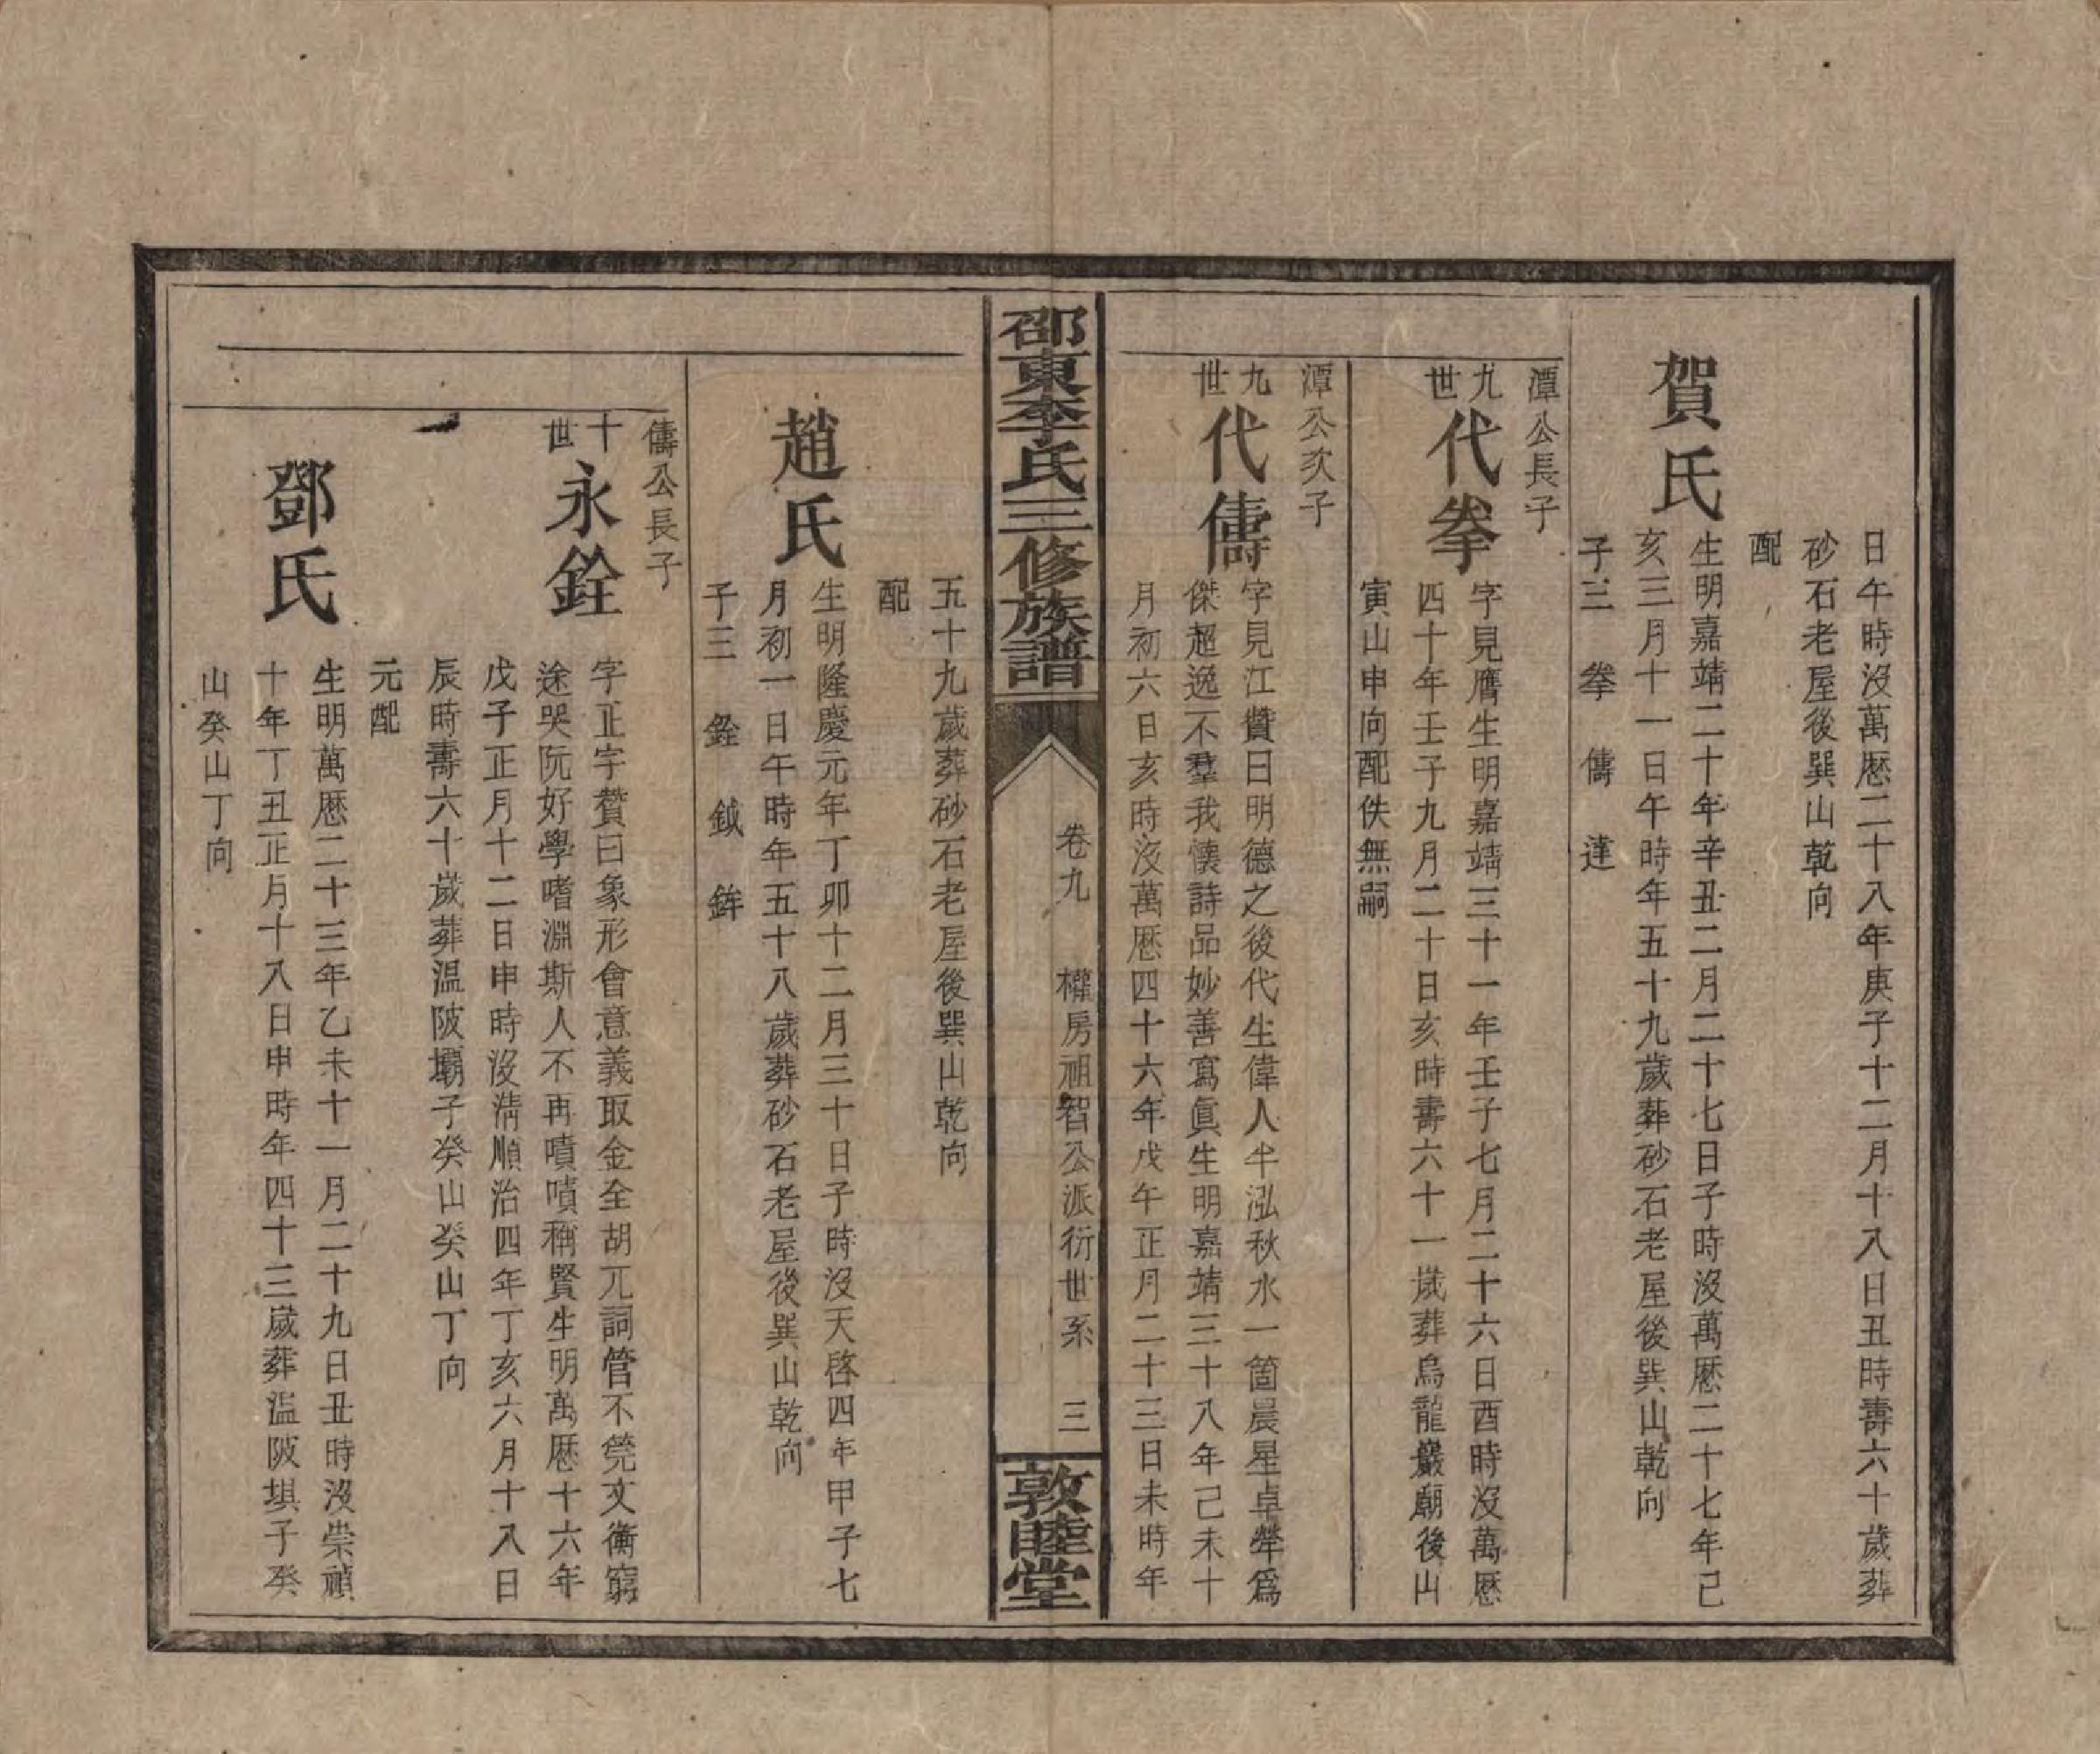 日午時沒萬厯二十八年庚子十二月十八日丑時壽六十歲葬
砂石老屋後巽山乾向
配
賀氏
生明嘉靖二十年辛丑二月二十七日子時沒萬厯二十七年己
亥三月十一日午時年五十九歲葬砂石老屋後巽山乾向
子三 拳 儔 達
潭公長子
九世
代拳
字見膺生明嘉靖三十一年壬子七月二十六日酉時沒萬厯
四十年壬子九月二十日亥時壽六十一歲葬烏龍巖廟後山
寅山申向配佚無嗣
潭公次子
九世
代儔
字見江贊曰明德之後代生偉人半泓秋水一箇晨星卓犖爲
傑超逸不羣我懷詩品妙善寫眞生明嘉靖三十八年己未十
月初六日亥時沒萬厯四十六年戊午正月二十三日未時年
邵東李氏三修族譜
卷九 權房祖智公派衍世系 三
敦睦堂
五十九歲葬砂石老屋後巽山乾向
配
趙氏
生明隆慶元年丁卯十二月三十日子時沒天啓四年甲子七
月初一日午時年五十八歲葬砂石老屋後巽山乾向
子三 銓 鉞 鉾
儔公長子
十世
永銓
字正字贊曰象形會意義取金全胡兀詞管不筦文衡窮
途哭阮好學嗜淵斯人不再嘖嘖稱賢生明萬厯十六年
戊子正月十二日申時沒淸順治四年丁亥六月十八日
辰時壽六十歲葬温陂壩子癸山癸山丁向
元配
鄧氏
生明萬厯二十三年乙未十一月二十九日丑時沒崇禎
十年丁丑正月十八日申時年四十三歲葬温陂垻子癸
山癸山丁向